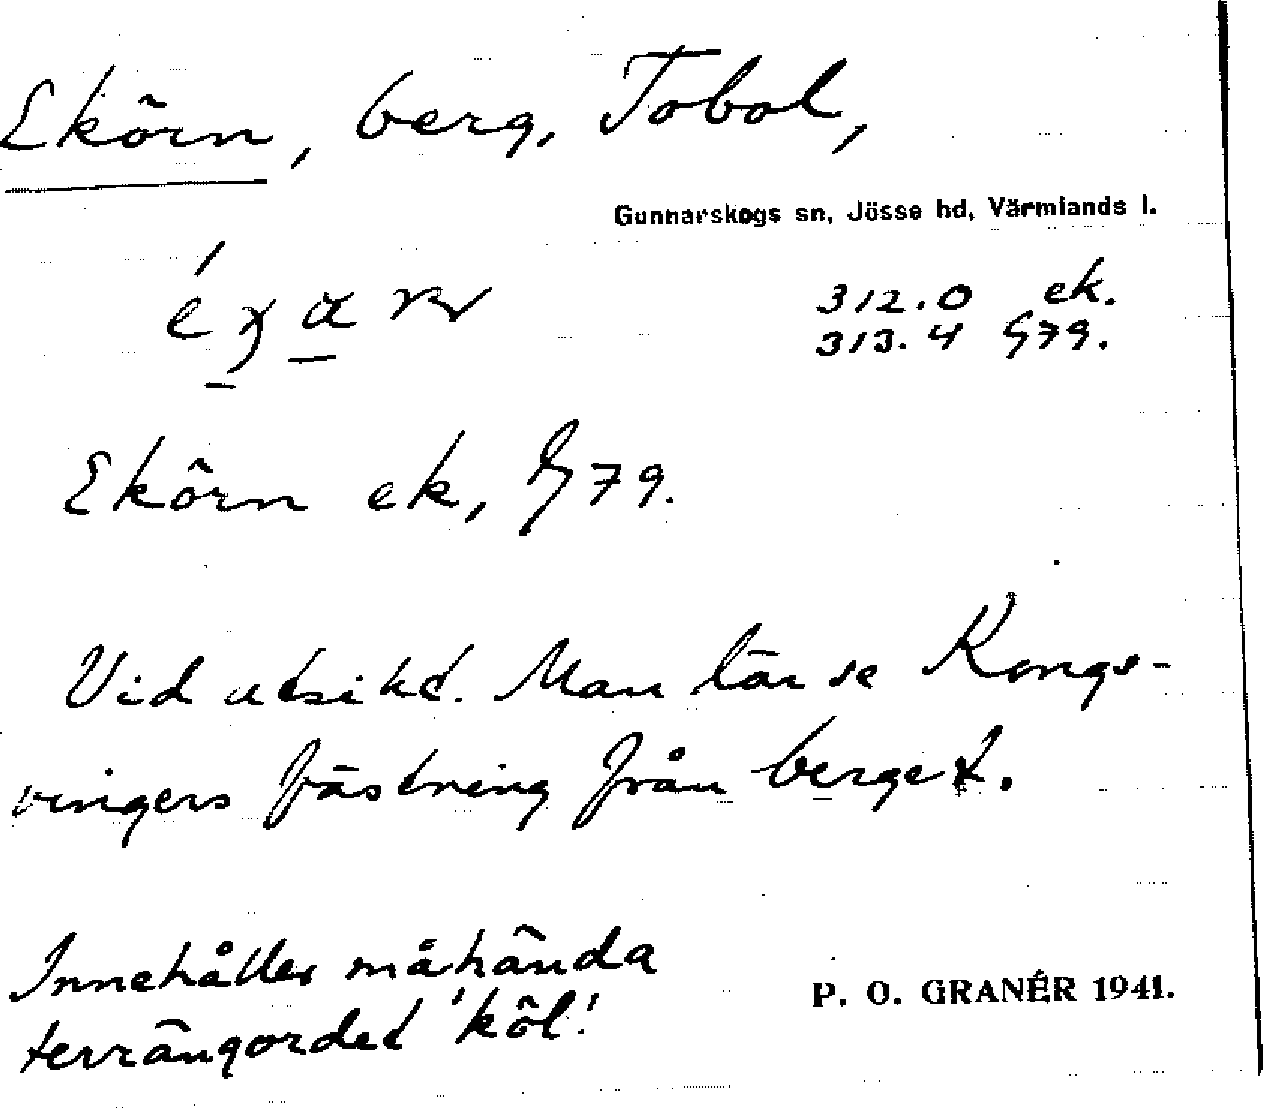 Ekörn, berg, Tobol,
Gunnarskogs sn, Jösse hd, Värmlands l.
312.0 ek.
313.4 G79.
Ekörn ek, G79.
Vid utsikt. Man lär se Kongs-
vingers fästning från berget.
Innehåller måhända
terrängordet 'köl'.
P. O. GRANÉR 1941.